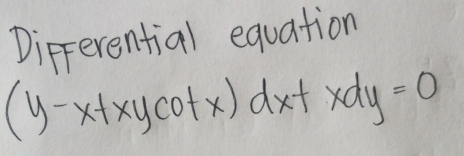 Differential equation
(y-x+xycotx) dx+ xdy = 0